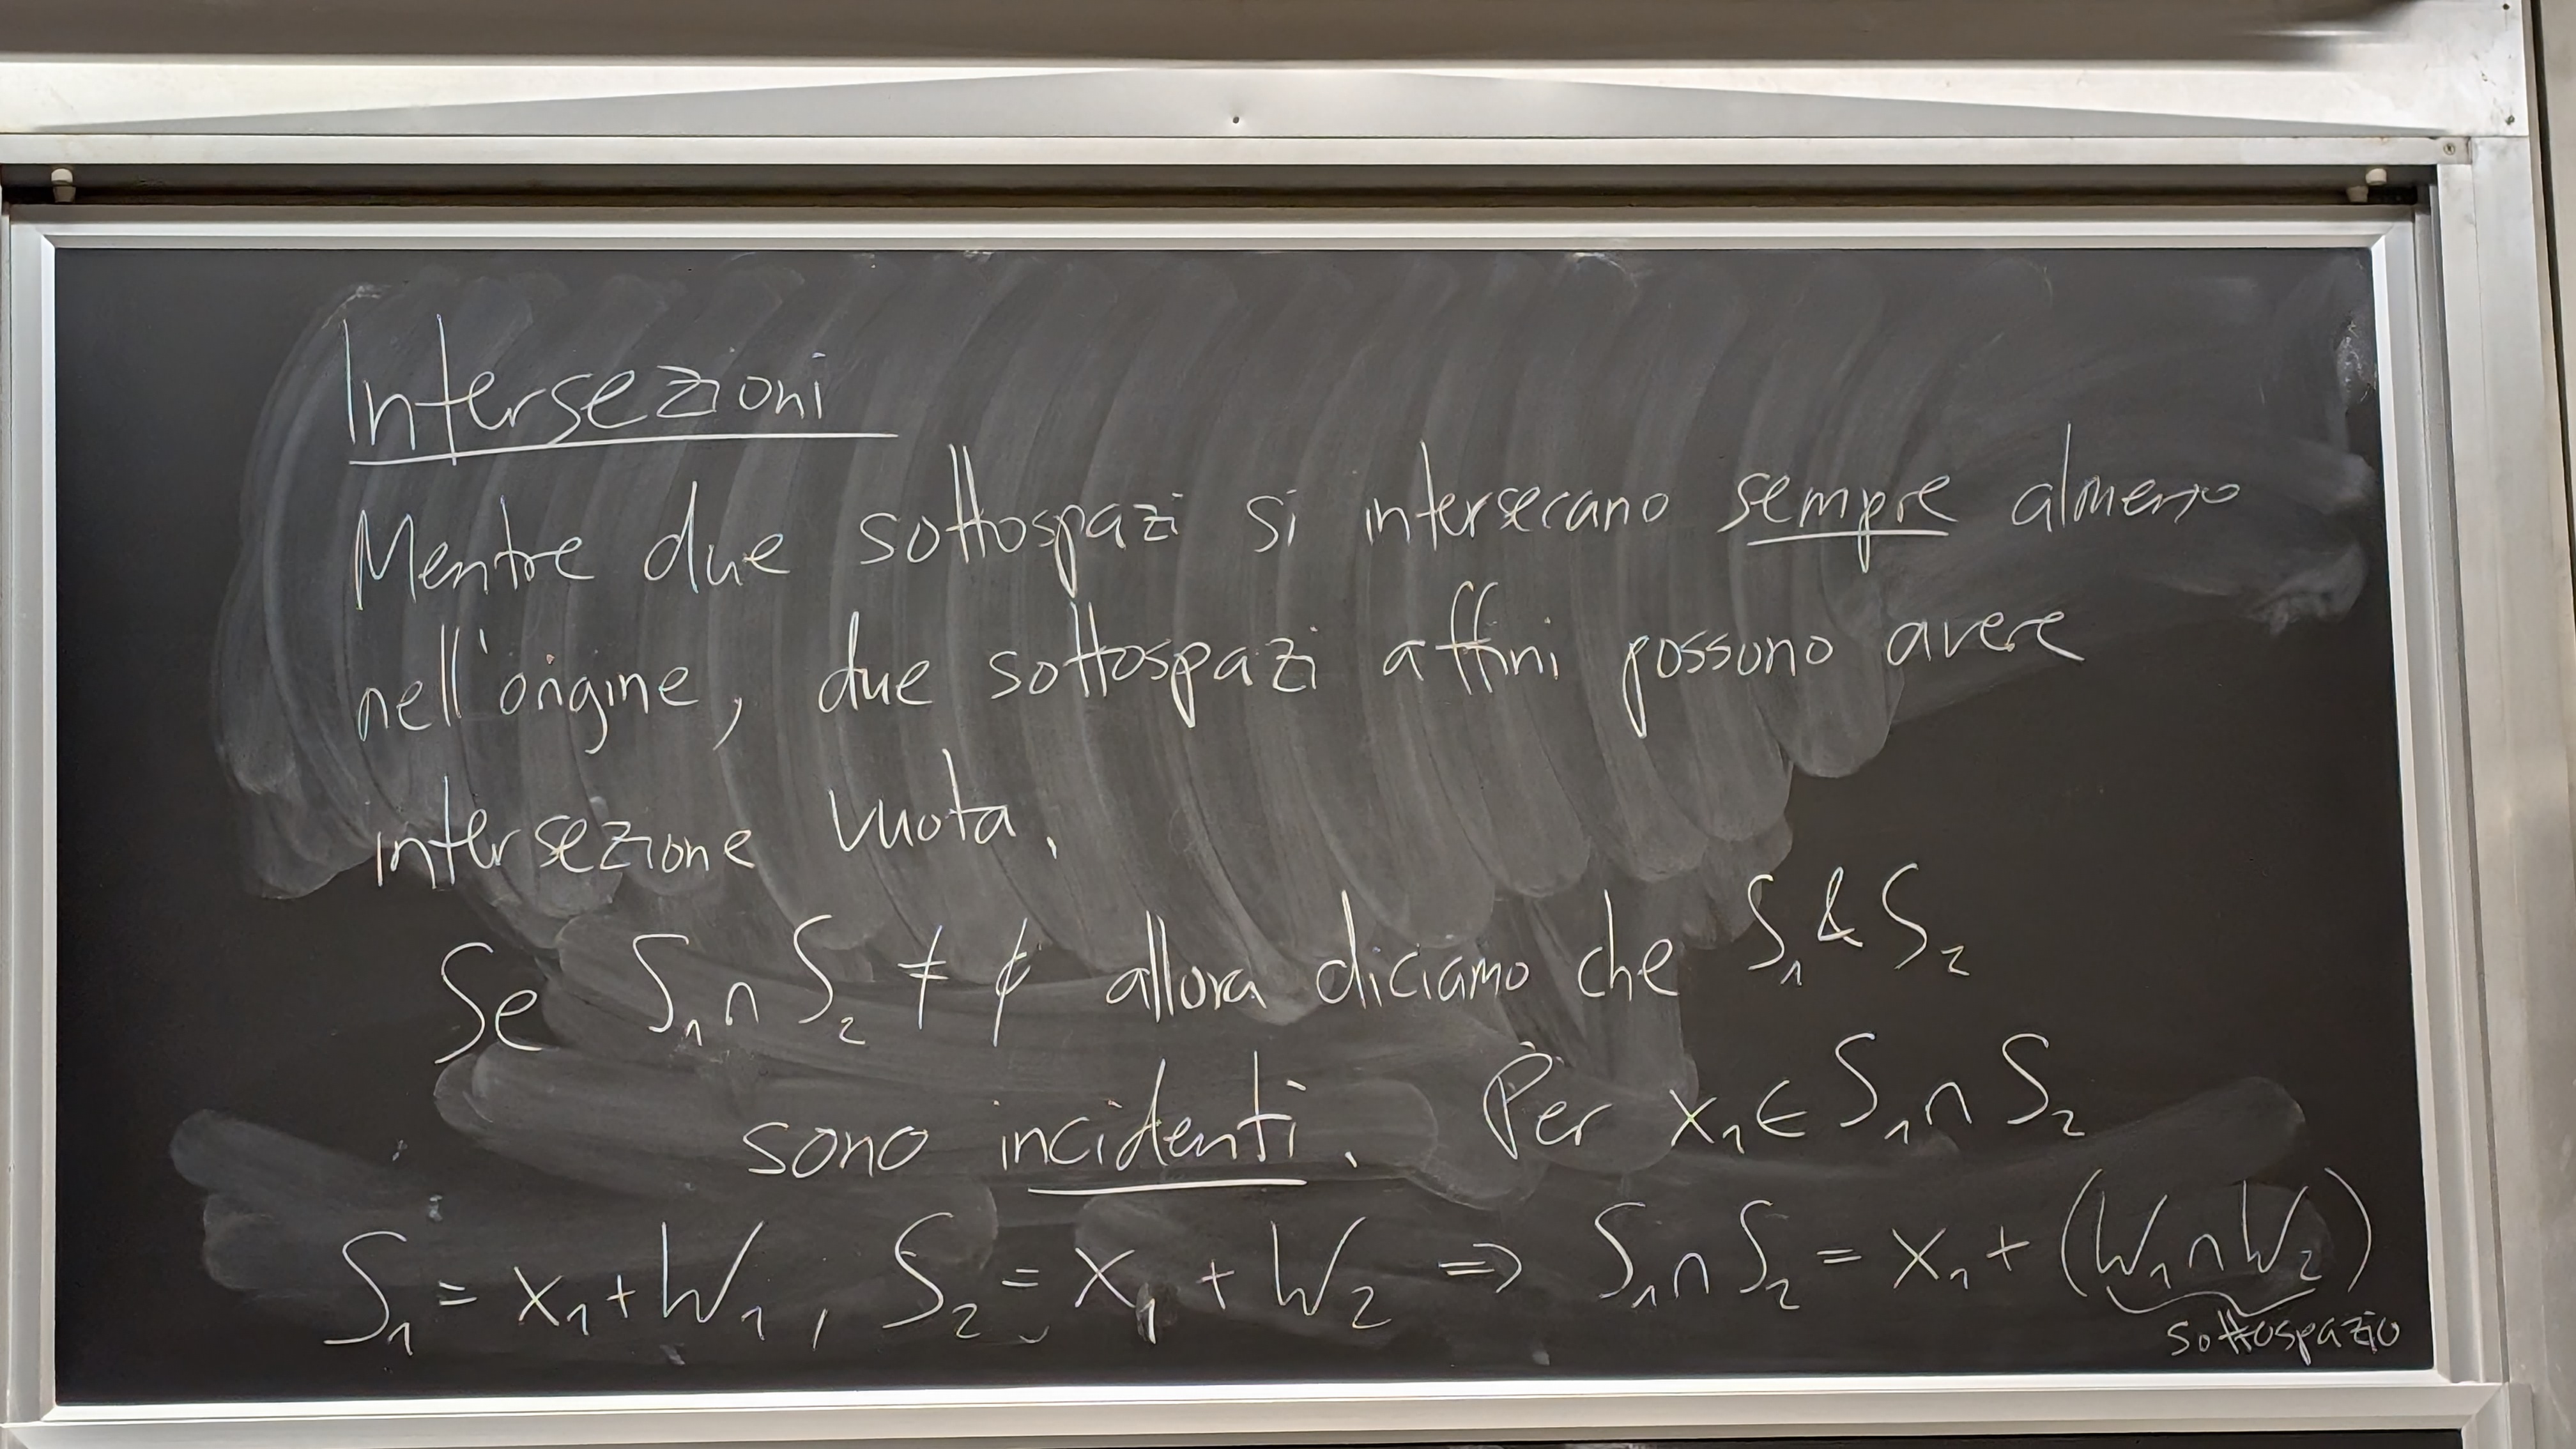 Intersezioni
Mentre due sottospazi si intersecano sempre almeno
nell'origine, due sottospazi affini possono avere
intersezione vuota.
Se S₁ ∩ S₂ ≠ ∅ allora diciamo che S₁ & S₂
sono incidenti. Per x₁ ∈ S₁ ∩ S₂
S₁ = x₁ + W₁, S₂ = x₁ + W₂ ⇒ S₁ ∩ S₂ = x₁ + (W₁ ∩ W₂)
sottospazio